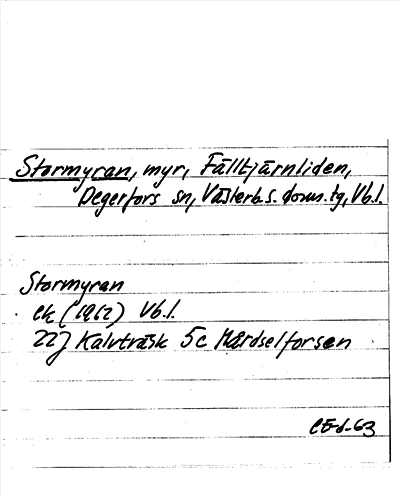 Stormyran, myr, Fälltjärnliden,
Degerfors sn, Västerb.s. doms.tg, Vb.l.
Stormyran
ek (1962) Vb.l.
22J Kalvträsk 5c Mårdselforsen